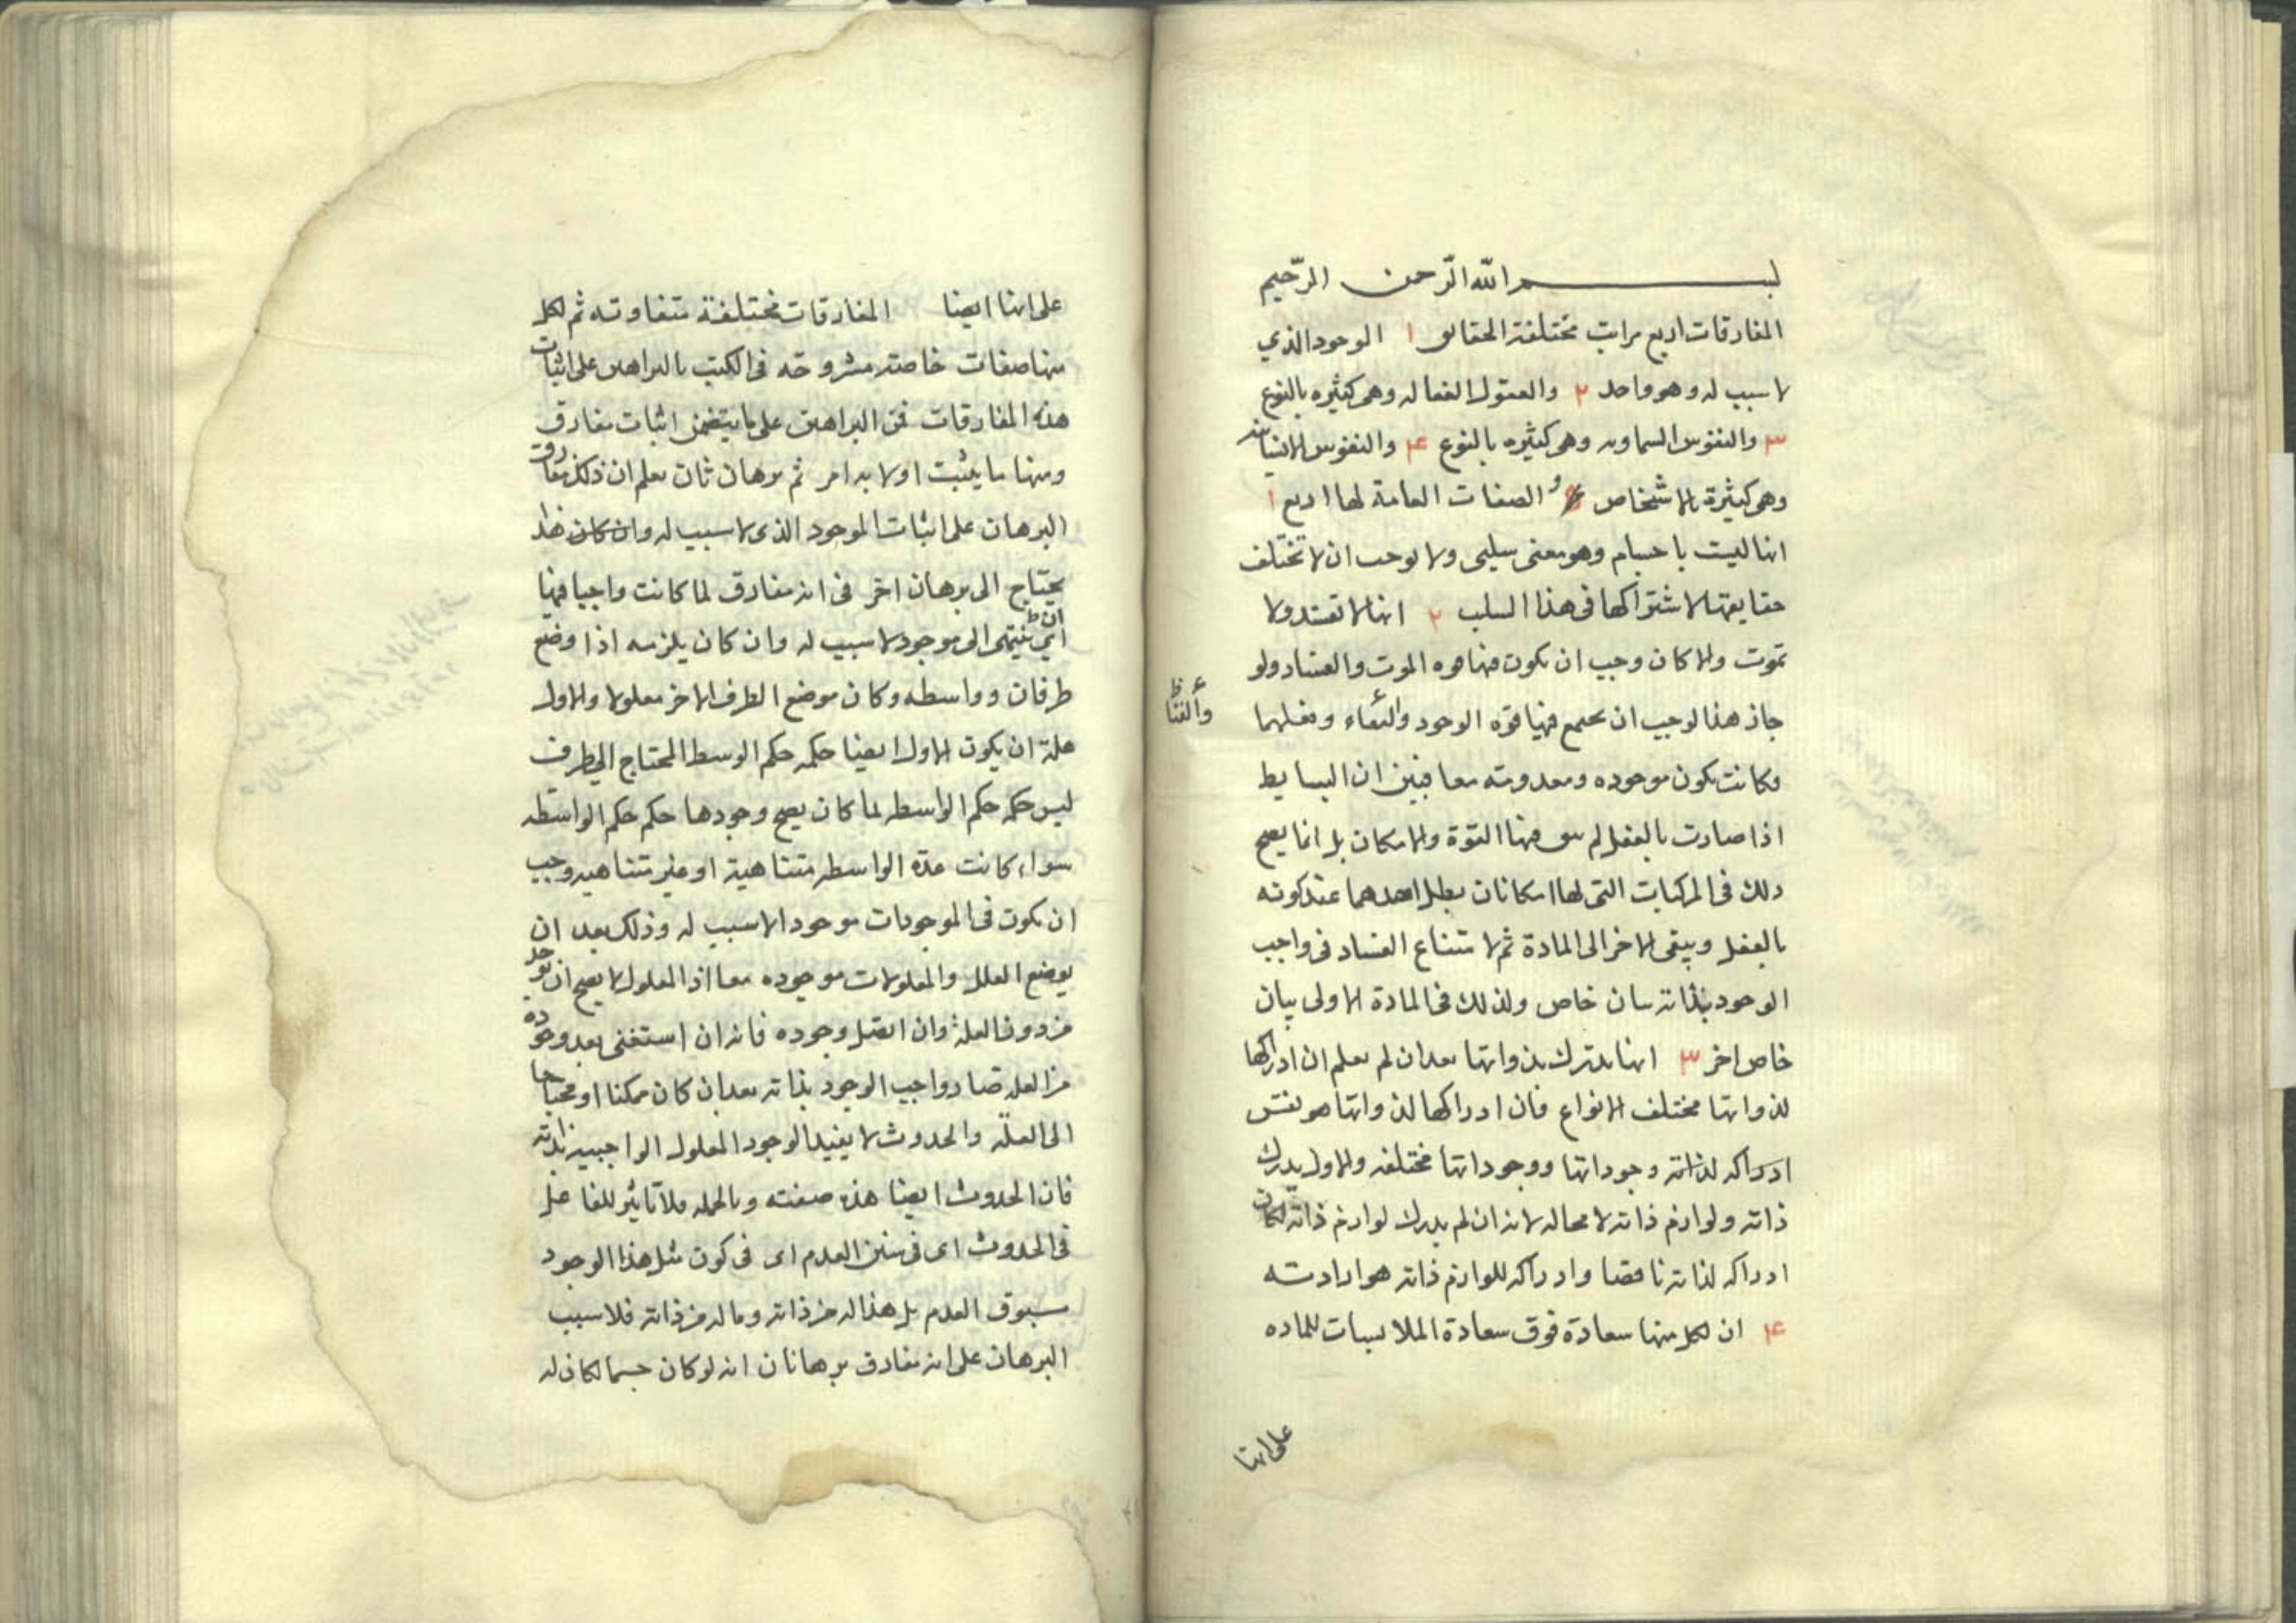 بسم الله الرّحمن الرّحيم
المفارقات اربع مراتب مختلفة الحقائق ١ الوجود الذي
لا سبب له وهو واحد ٢ والعقول الفعاله وهى كثيره بالنوع
٣ والنفوس السماويه وهى كثيره بالنوع ۴ والنفوس الانسانيه
وهى كثيرة بالاشخاص و الصفات العامة لها اربع ١
انها ليست باجسام وهو معنى سلبى ولا يوجب ان لا تختلف
حقايقها لاشتراكها فى هذا السلب ٢ انها لا تفسد ولا
تموت والا كان وجب ان يكون فيها قوه الموت والفساد ولو
جاز هذا لوجب ان يجمع فيها قوّه الوجود والبقاء وفعلهما
والفنا ظ
وكانت يكون موجوده ومعدومه معا فبين ان البسايط
اذا صارت بالفعل لم يبق فيها القوة والامكان بل انما يصح
ذلك فى المركبات التى لها امكانان يبطل احدهما عند كونه
بالفعل ويبقى الاخر الى المادة ثم لامتناع الفساد فى واجب
الوجود بذاته بيان خاص ولذلك فى المادة الاولى بيان
خاص اخر ٣ انها يدرك بذواتها بعد ان لم يعلم ان ادراكها
لذواتها مختلف الانواع فان ادراكها لذواتها هو نفس
ادراكه لذاته وجوداتها ووجوداتها مختلفه والاول يدرك
ذاته ولوازم ذاته لا محاله لانه ان لم يدرك لوازم ذاته لكان
ادراكه لذاته ناقصا وادراكه للوازم ذاته هو ارادته
۴ ان لكل منها سعادة فوق سعادة الملابسات للماده
على انها
على انها ايضا المفارقات مختلفة متفاوته ثم لكل
منها صفات خاصة مشروحه فى الكتب بالبراهين على اثبات
هذه المفارقات فمن البراهين على ما يتضمن اثبات مفارق
ومنها ما يثبت اولا به امر ثم برهان ثان يعلم ان ذلك مفارق
البرهان على اثبات الموجود الذى لا سبب له وان كان هذا
يحتاج الى برهان اخر فى انه مفارق لما كانت واجبا فيها
ان ظ
اي ينتهى الى موجود لا سبب له وان كان يلزمه اذا وضع
طرفان وواسطه وكان موضع الطرف الاخر معلولا والاول
علة ان يكون الاول ايضا حكمه حكم الوسط المحتاج الى طرف
ليس حكمه حكم الواسطه لما كان يصح وجودها حكم حكم الواسطه
سواء كانت عدّه الواسطه متناهية او غير متناهيه وجب
ان يكون فى الموجودات موجود الا سبب له وذلك بعد ان
يوضع العلل والمعلولات موجوده معا اذ المعلول لا يصح ان يوجد
من دون العلة وان اتصل وجوده فانه ان استغنى بعد وجوده
من العله صار واجب الوجود بذاته بعد ان كان ممكنا او محتاجا
الى العلّه والحدوث لا يفيد الوجود المعلول الواجبيه بذاته
فان الحدوث ايضا هذه صفته وبالجمله فلا تاثير للفاعل
فى الحدوث اى فى سبق العدم اى فى كون مثل هذا الوجود
مسبوق العدم بل هذا له من ذاته وما له من ذاته فلا سبب
البرهان على انه مفارق برهانان انه لو كان جسما لكان له